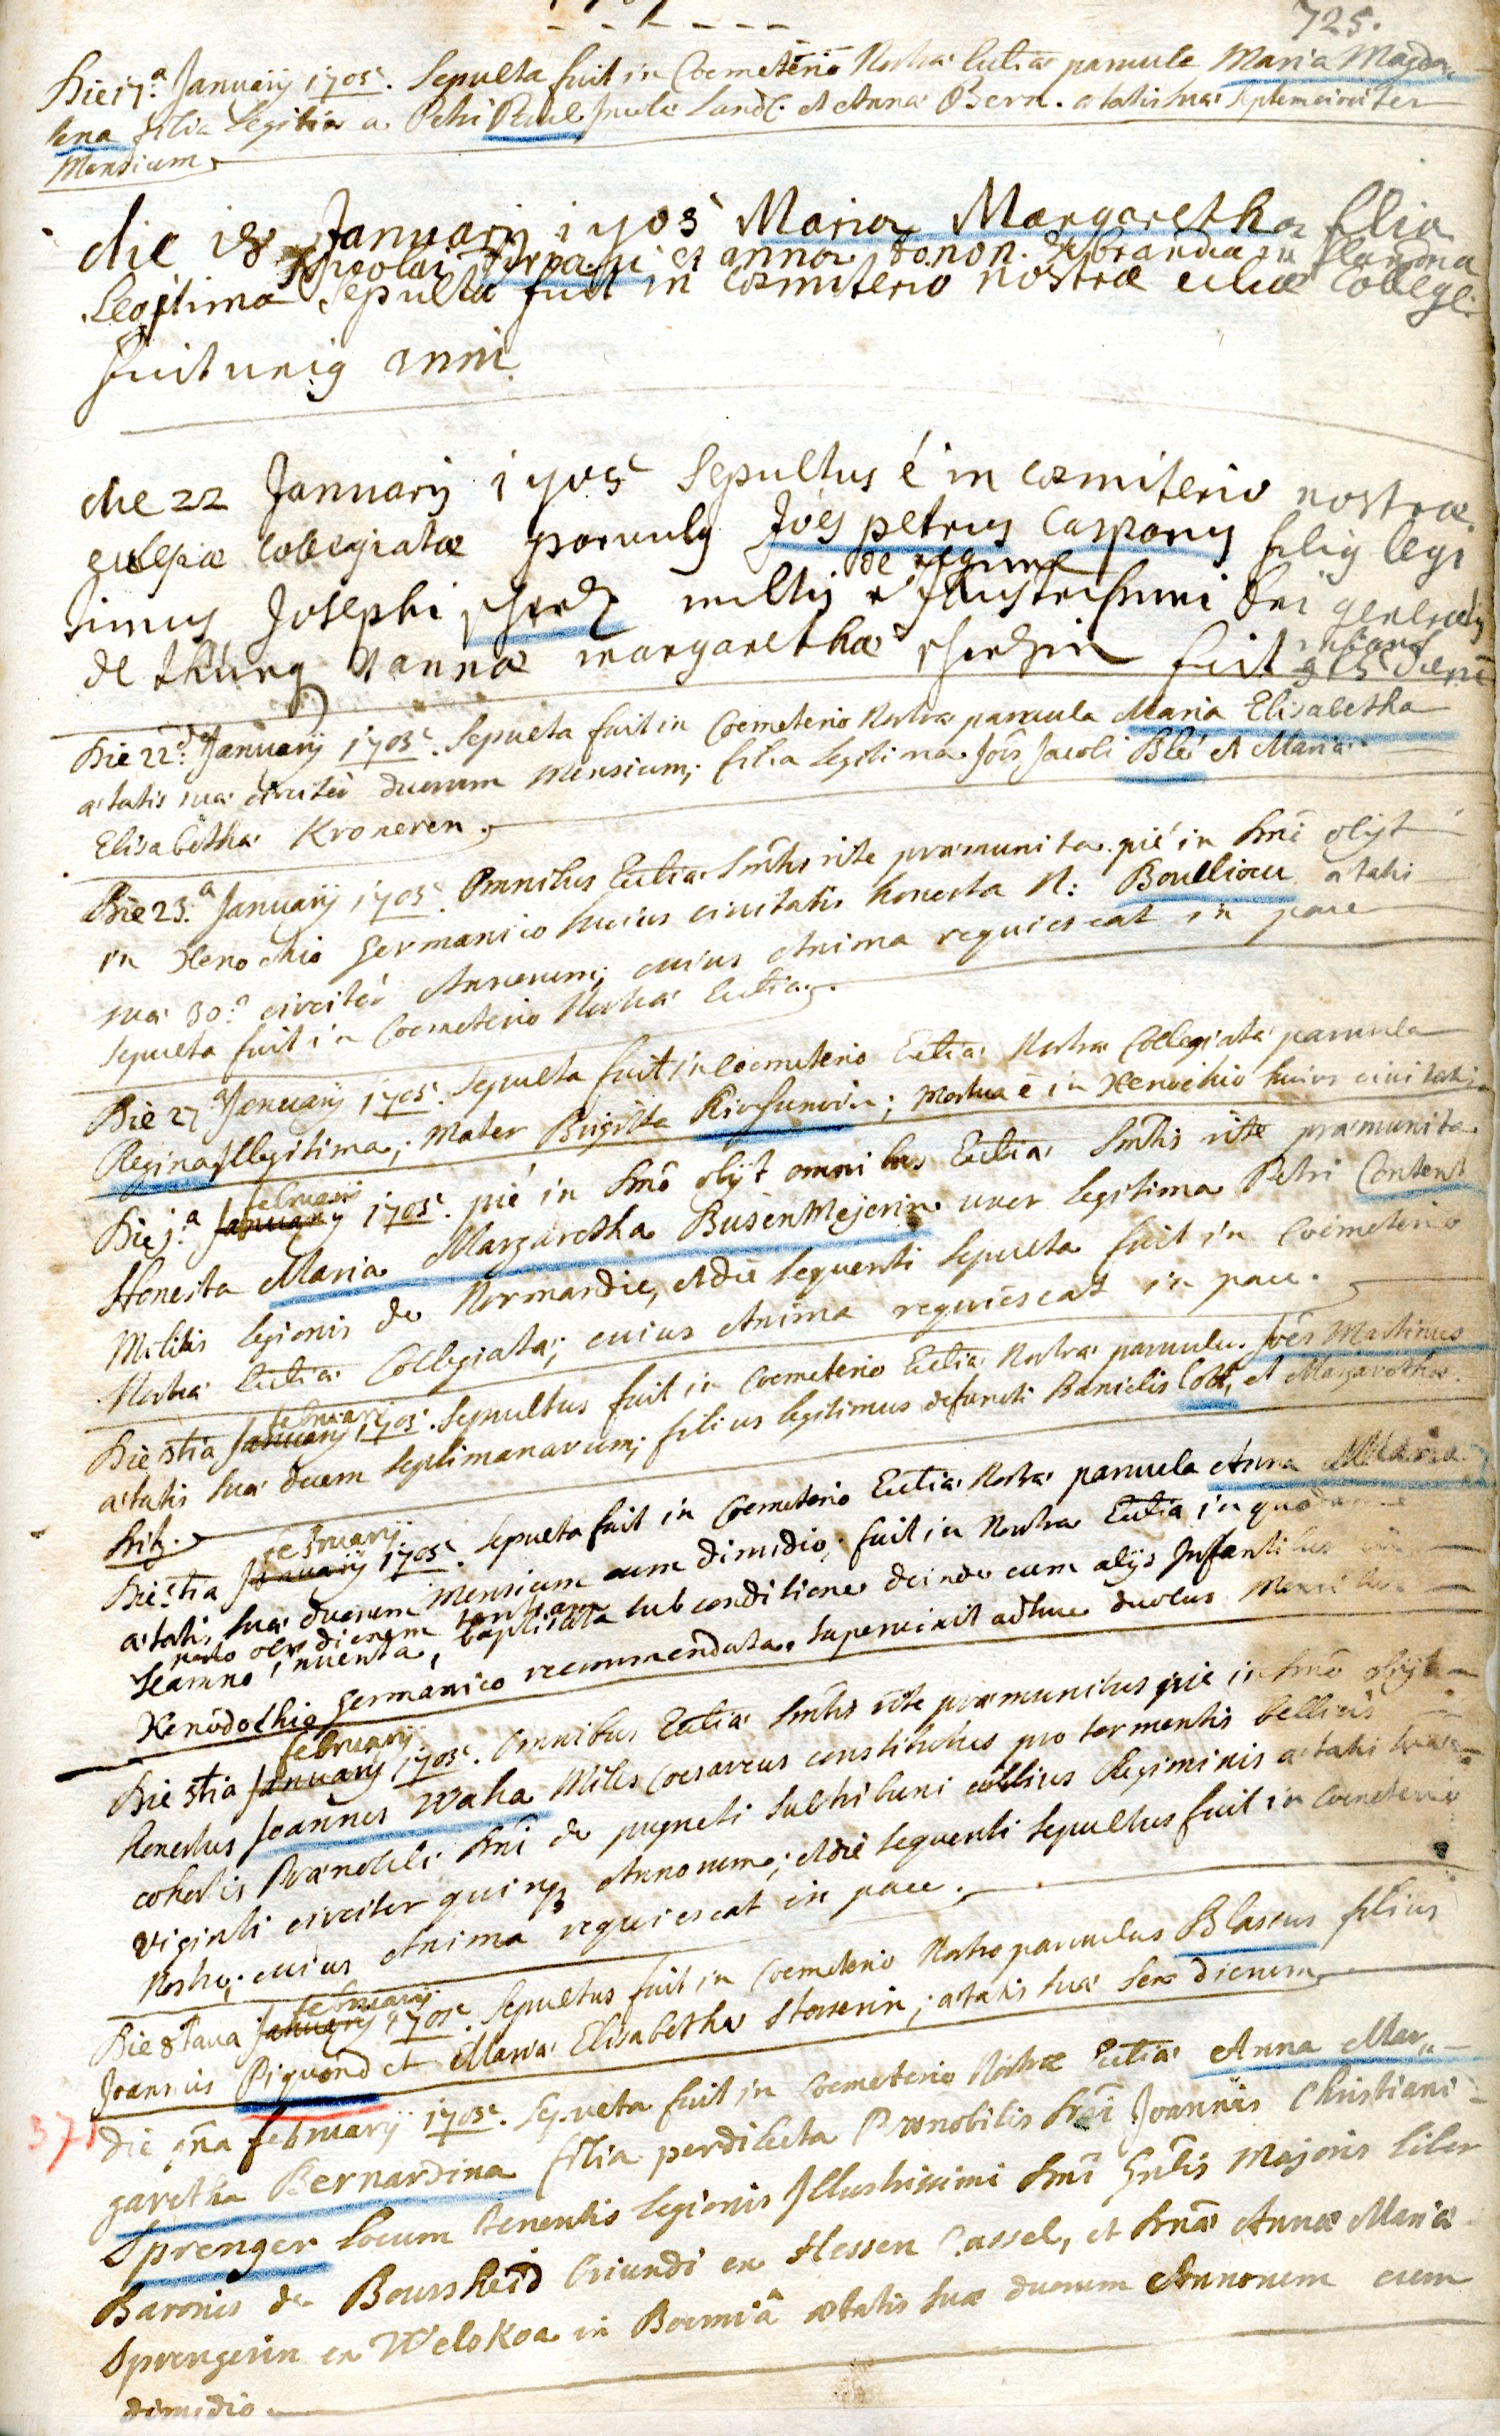 725.
Die 17.a Januarij 1705. Sepulta fuit in Coemeterio Nostræ Ecclia parvula Maria Magda
lena filia legitima Petri incola Land. et Anna Bern. ætatis suæ septem circiter
Mensium.
die 18 Januarij 1705 Maria Margaretha filia
Nicolai et anna in flandria
Legitima Sepulta fuit in cœmiterio nostræ eclæ Collegi.
fuit unig anni.
die 22 Januarij 1705 Sepultus é in cœmiterio nostræ
Collegiatæ parvulg Joés petrus Casparus filig legi
timus Josephi militis de regime generalis
de thüng et annæ margarethæ fuit
Die 22.a Januarij 1705. Sepulta fuit in Coemeterio Nostra parvula Maria Elisabetha
ætatis suæ circiter duorum Mensium; filia legitima Jôis Jacobi Blé et Maria
Elisabetha Kroneren.
Die 23.a Januarij 1705. Omnibus Ecclia Smtis rite præmunita pié in Dnô obijt
in Xenochio Germanico huius civitatis honesta N: Boulliou ætatis
suæ 30.o circiter Annorum; cuius Anima requiescat in pace
sepulta fuit in Coemeterio Nostra Ecclia.
Die 27.a Januarij 1705. Sepulta fuit in Coemeterio Ecclia Nostra Collegiata parvula
Regina Illegitima; Mater Brigitta; Mortua ê in Xenochio huius civitatis
Die j.a Januarij februarij 1705. pié in Dnô obijt omnibus Ecclia Smtis rite præmunita
Honesta Maria Margaretha BusenMejerin uxor legitima Petri Content
Militis legionis de Normandie, et die sequenti sepulta fuit in Coemeterio
Nostra Ecclia Collegiata; cuius Anima requiescat in pace.
Die 5tia Januarij februarij 1705. Sepultus fuit in Coemeterio Ecclia Nostra parvulus Joês Martinus
ætatis suæ duem septimanarum; filius legitimus defuncti Danielis et Margaretha
Die 5tia Januarij februarij 1705. Sepulta fuit in Coemeterio Ecclia Nostra parvula Anna Maria
ætatis suæ duorum Mensium cum dimidio; fuit in Nostra Ecclia in quodam
Scamno inventa, nato octo dierum tantum baptizata sub conditione deinde cum alijs Infantibus in
Xenodochio Germanico recommendata, supervixit adhuc duobus Mensibus
Die 5tia Januarij februarij 1705. Omnibus Ecclia Smtis rite præmunitus pié in Dnô obijt
honestus Joannes Waha Miles Cæsareus constitutus pro tormentis bellicis
cohortis Prænobili Dni de pugneti Subtribuni Regiminis ætatis suæ
viginti circiter quinq Annorum; et die sequenti sepultus fuit in Coemeterio
Nostro; cuius Anima requiescat in pace.
Die 8tava Januarij februarij 1705. Sepultus fuit in Coemeterio Nostro parvulus Blasius filius
Joannis Piquard et Maria Elisabetha Stasserin; ætatis suæ sex dierum
37
die 9na februarij 1705. Sepulta fuit in Coemeterio Nostræ Ecclia Anna Mar„
garetha Bernardina filia perdilecta Prænobilis Dni Joannis Christiani
Sprenger Locum tenentis legionis Illustrissimi Dni Gnlis Majoris liber
Baronis de Boursheid Oriundi ex Hessen Cassel, et Dnæ Annæ Mariæ
Sprengerin ex Welokoa in Boemiâ ætatis suæ duorum Annorum cum
dimidio